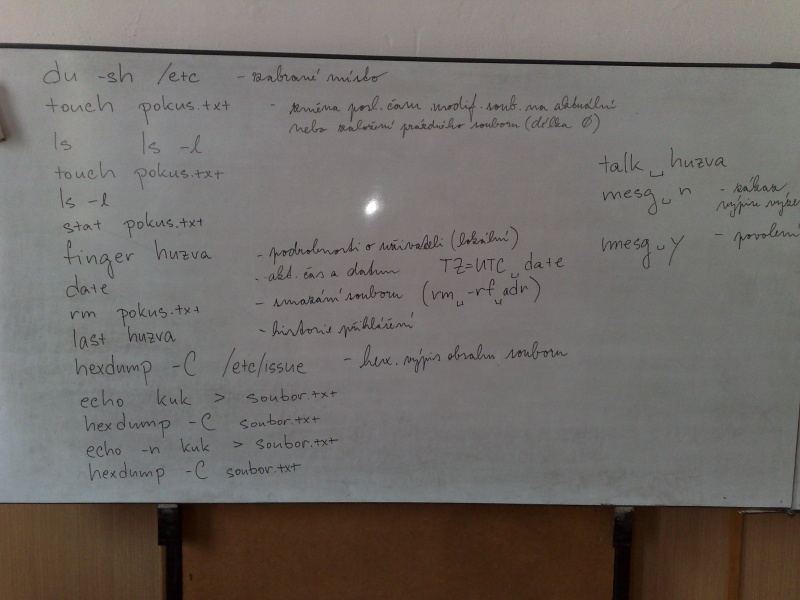 du -sh /etc - zabrané místo
touch pokus.txt - změna posl. času modif. soub. na aktuální
nebo založení prázdného souboru (délka 0)
ls ls -l
touch pokus.txt
ls -l
stat pokus.txt
finger huzva - podrobnosti o uživateli (lokální)
date - akt. čas a datum TZ=UTC␣date
rm pokus.txt - smazání souboru (rm␣-rf␣adr)
last huzva - historie přihlášení
hexdump -C /etc/issue - hex. výpis obsahu souboru
echo kuk > soubor.txt
hexdump -C soubor.txt
echo -n kuk > soubor.txt
hexdump -C soubor.txt
talk␣huzva
mesg␣n - zákaz
výpisu
mesg␣y - povolení